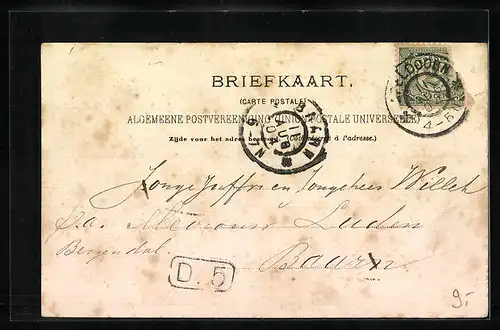 BRIEFKAART.
(CARTE POSTALE)
ALGEMEENE POSTVEREENIGING (UNION POSTALE UNIVERSELLE)
Zijde voor het adres bestemd. (Côté réservé à l'adresse.)
4-5
BAARN
Jonge Juffr en Jongeheer
p.a. Mevrouw Luden
Bergendal.
Baarn
D. 5
9.-